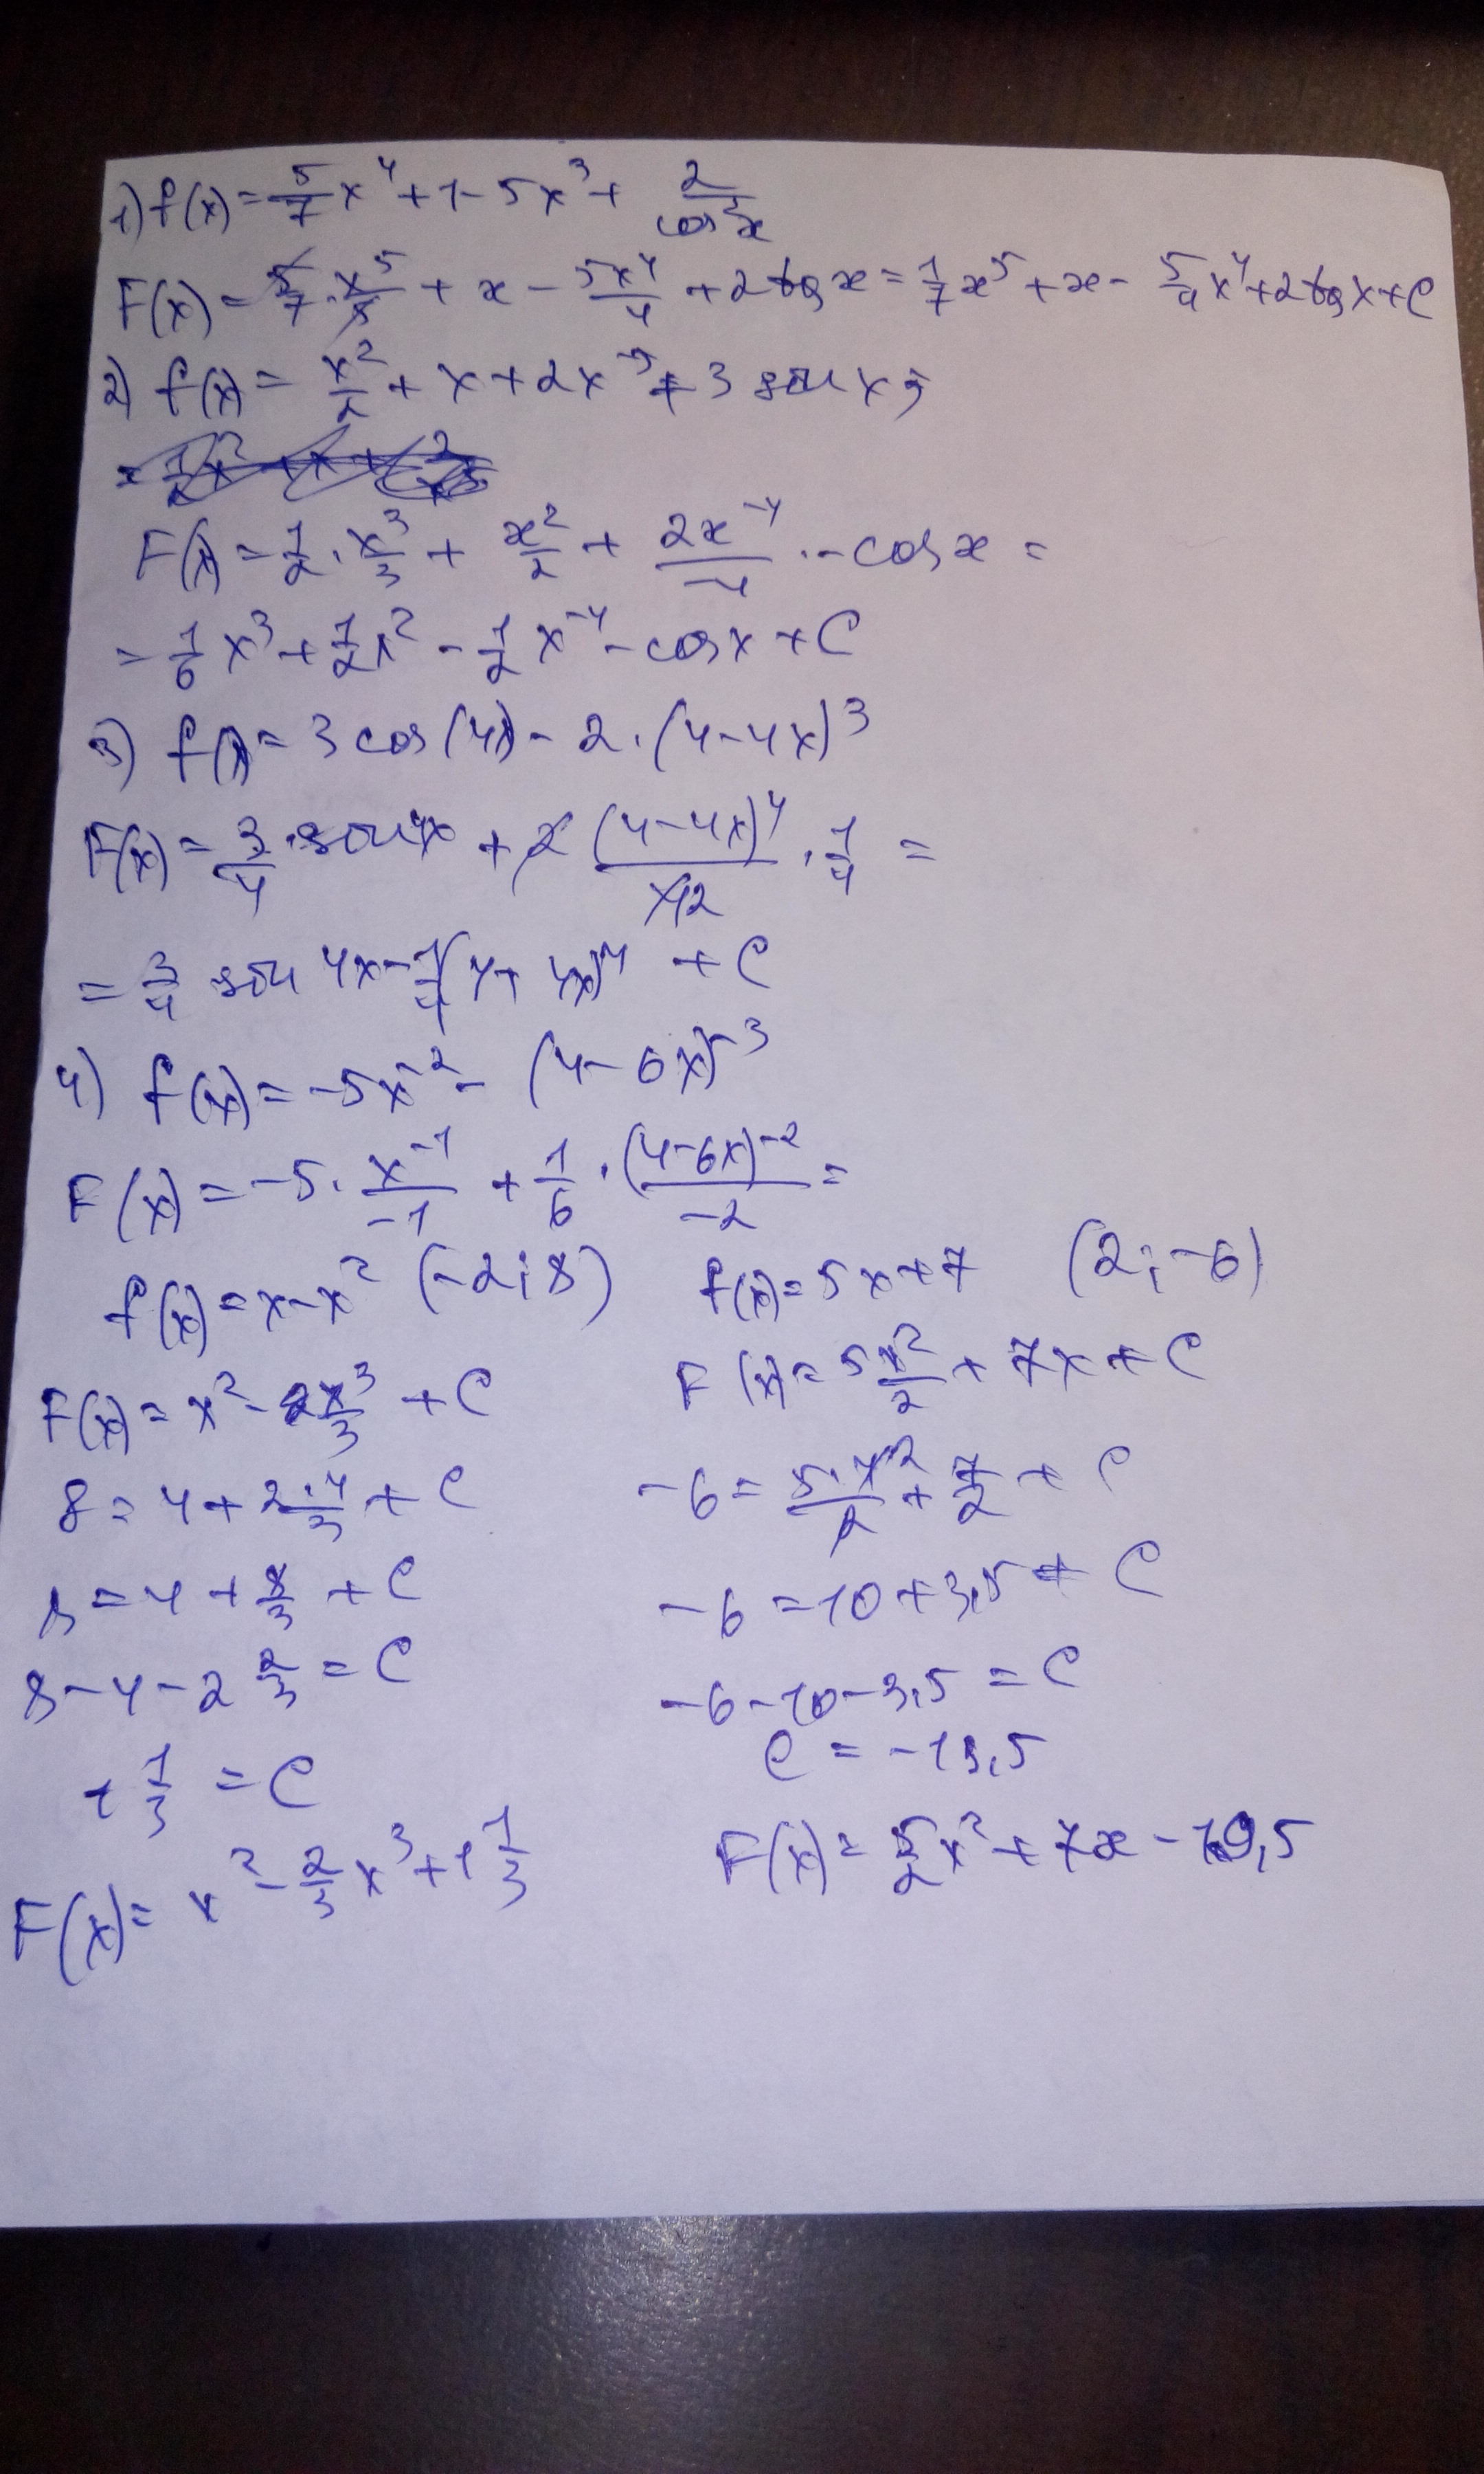 1) f(x) = 5/7 x⁴ + 1 - 5x³ + 2/cos²x
F(x) = 5/7 · x⁵/5 + x - 5x⁴/4 + 2 tg x = 1/7 x⁵ + x - 5/4 x⁴ + 2 tg x + C
2) f(x) = x²/2 + x + 2x⁻⁵ + 3 sin x ;
F(x) = 1/2 · x³/3 + x²/2 + 2x⁻⁴/-4 · - cos x =
= 1/6 x³ + 1/2 x² - 1/2 x⁻⁴ - cos x + C
3) f(x) = 3 cos (4x) - 2 · (4 - 4x)³
F(x) = 3/4 · sin 4x + 2 (4 - 4x)⁴/42 · 1/4 =
= 3/4 sin 4x - 1/4 (4 + 4x)⁴ + C
4) f(x) = -5x⁻² - (4 - 6x)⁻³
F(x) = -5 · x⁻¹/-1 + 1/6 · (4 - 6x)⁻²/-2 =
f(x) = x - x² (-2; 8)
F(x) = x² - 2x³/3 + C
8 = 4 + 2·4/3 + C
8 = 4 + 8/3 + C
8 - 4 - 2 2/3 = C
1 1/3 = C
F(x) = x² - 2/3 x³ + 1 1/3
f(x) = 5x + 7 (2; -6)
F(x) = 5x²/2 + 7x + C
-6 = 5·4²/2 + 7/2 + C
-6 = 10 + 3,5 + C
-6 - 10 - 3,5 = C
C = -19,5
F(x) = 5/2 x² + 7x - 19,5